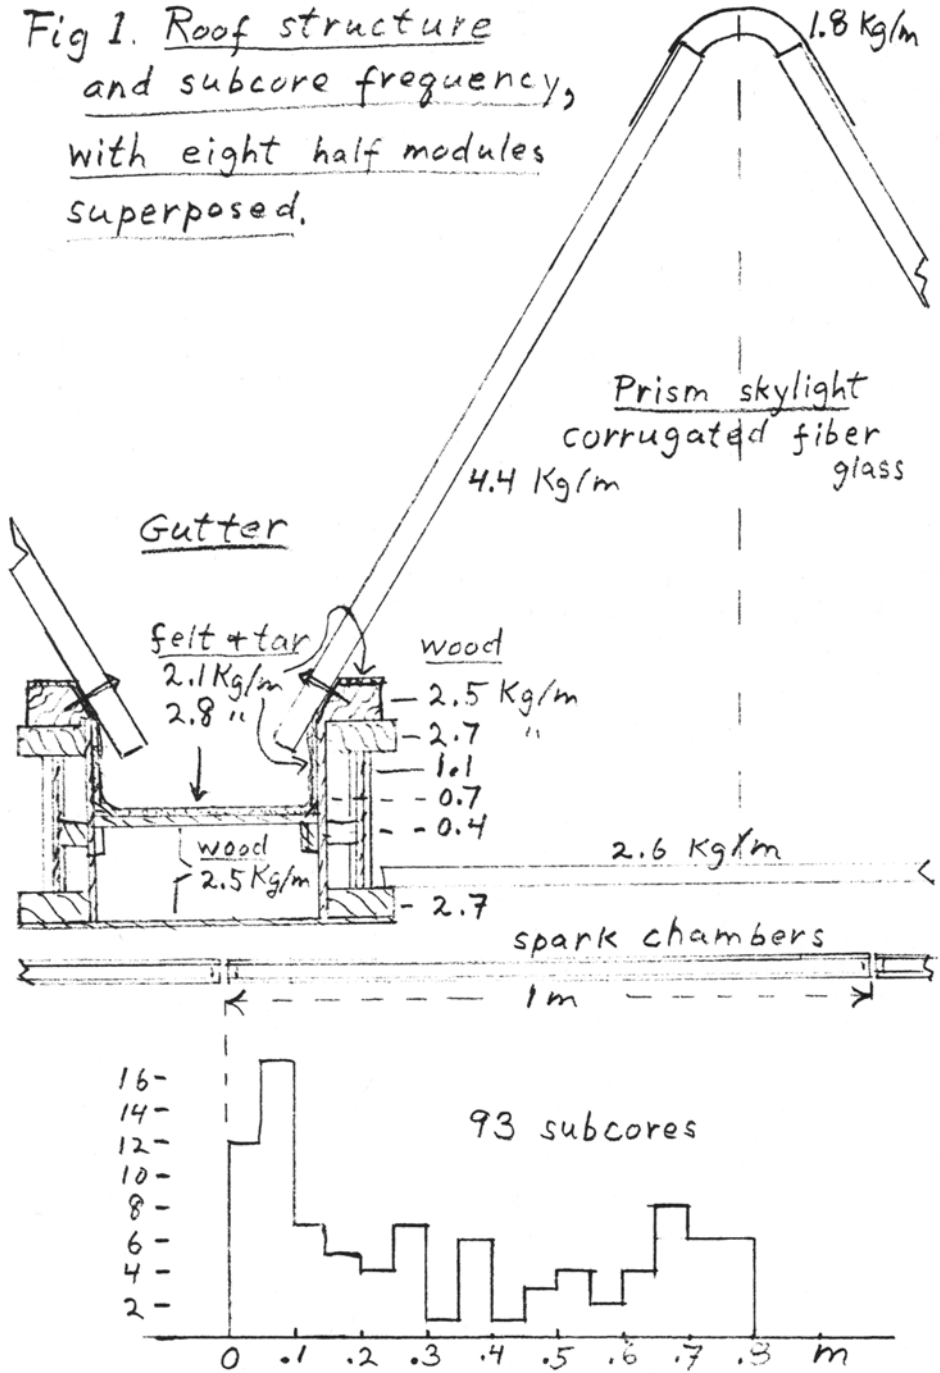 Fig 1. Roof structure
and subcore frequency,
with eight half modules
superposed.
1.8 Kg/m
Prism skylight
corrugated fiber
glass
4.4 Kg/m
Gutter
felt + tar
2.1 Kg/m
2.8 "
wood
2.5 Kg/m
2.7 "
1.1
0.7
0.4
2.7
wood
2.5 Kg/m
2.6 Kg/m
spark chambers
1 m
93 subcores
16
14
12
10
8
6
4
2
0 .1 .2 .3 .4 .5 .6 .7 .8 m